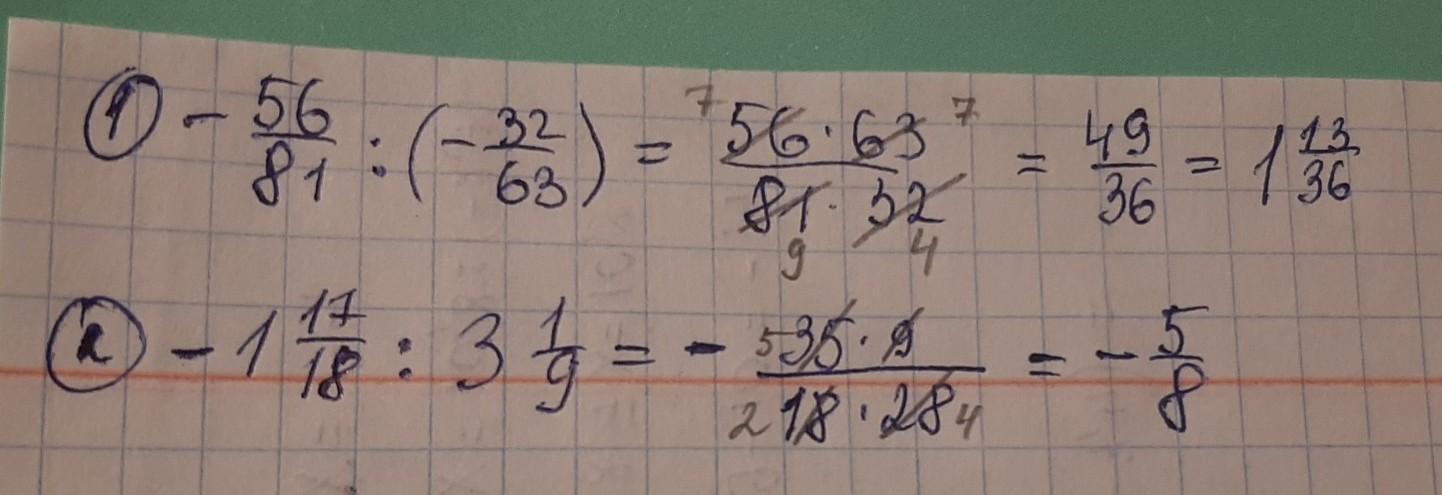 ① - 56/81 : (- 32/63) = 7 56 · 63 7 / 81 9 · 32 4 = 49/36 = 1 13/36
② - 1 17/18 : 3 1/9 = - 5 35 · 9 / 2 18 · 28 4 = - 5/8